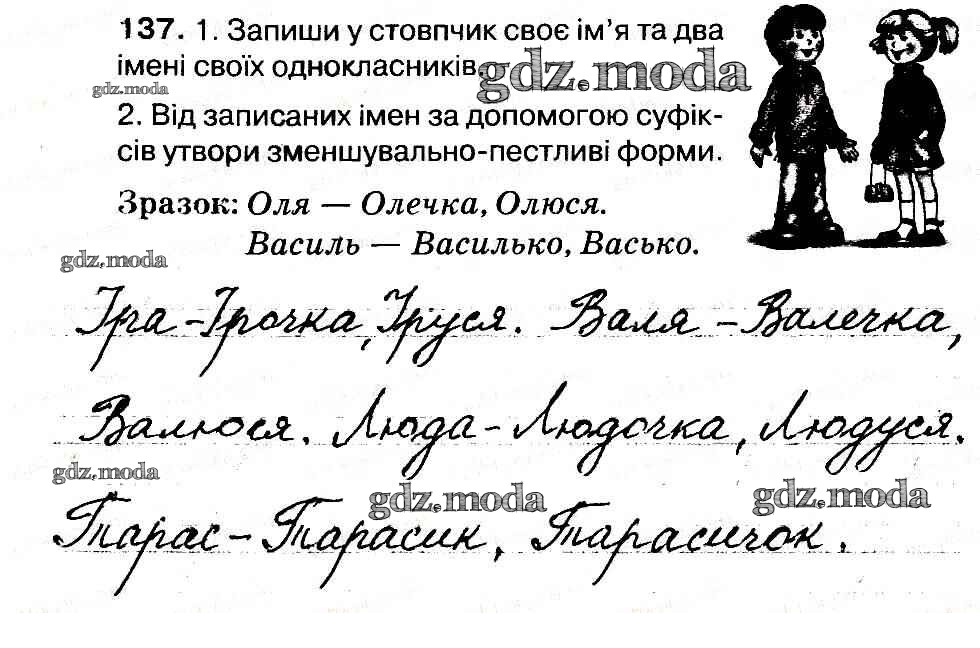 137. 1. Запиши у стовпчик своє ім'я та два
імені своїх однокласників.
gdz.moda
gdz.moda
2. Від записаних імен за допомогою суфік-
сів утвори зменшувально-пестливі форми.
Зразок: Оля — Олечка, Олюся.
Василь — Василько, Васько.
gdz.moda
Іра - Ірочка, Іруся. Валя - Валечка,
Валюся. Люда - Людочка, Людуся.
gdz.moda
gdz.moda
gdz.moda
Тарас - Тарасик, Тарасичок.